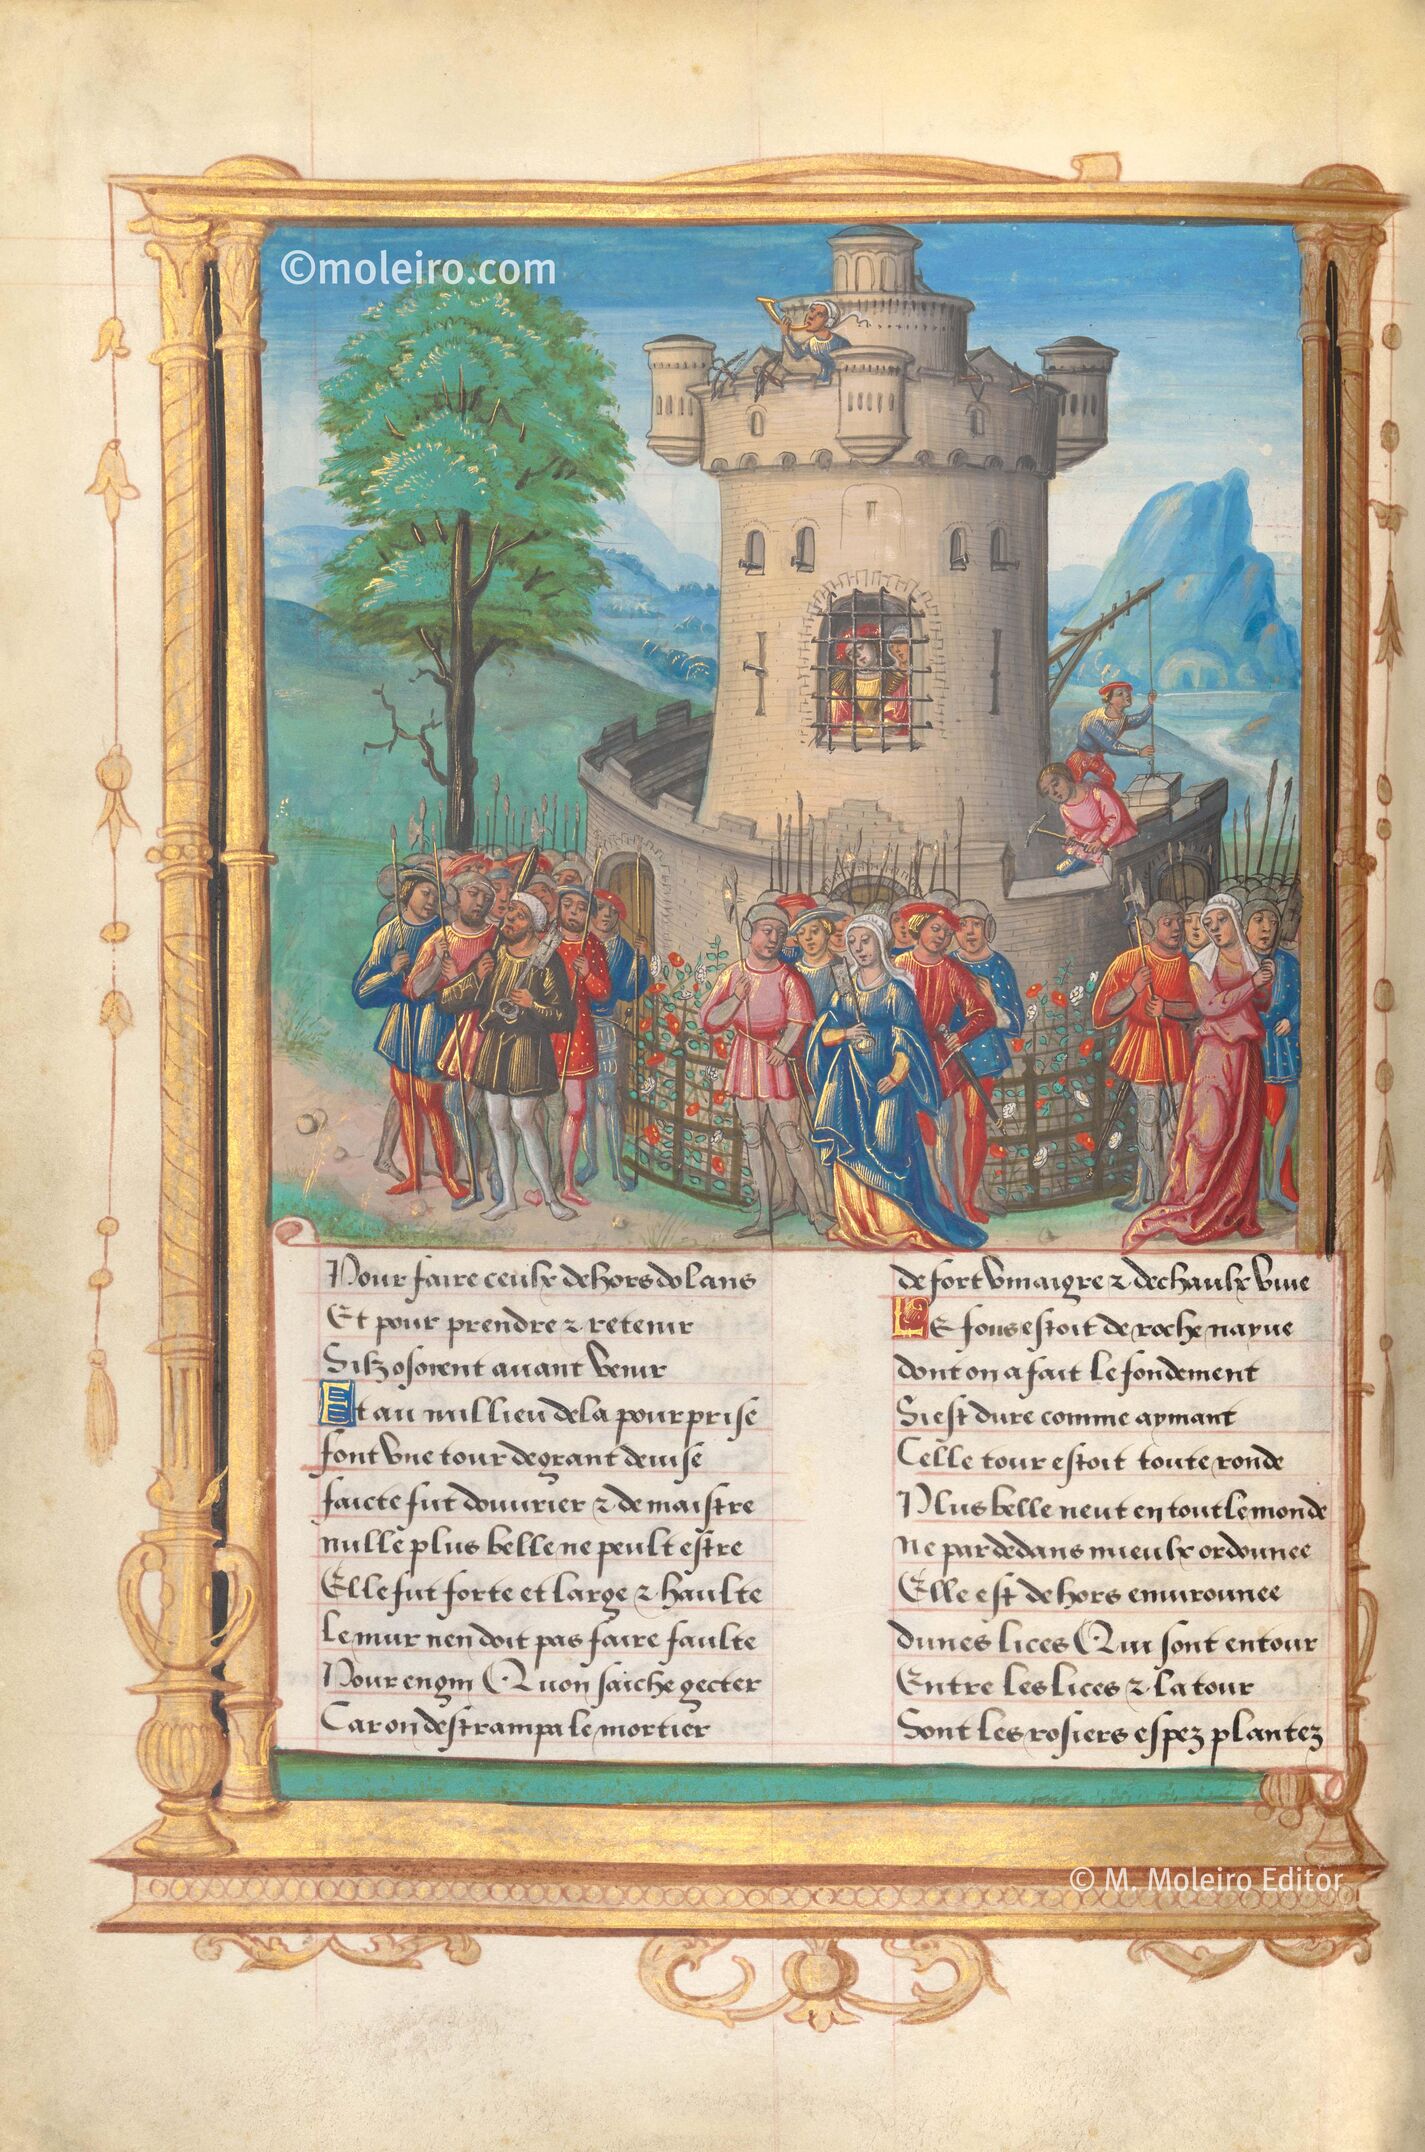 ©moleiro.com
Pour faire ceulx dehors dolans
Et pour prendre & retenir
Silz osorent auant venir
Et au millieu de la pourprise
font vne tour de grant deuise
faicte fut douurier & de maistre
nulle plus belle ne peult estre
Elle fut forte et large & haulte
Le mur nen doit pas faire faulte
Pour engin Quon saiche gecter
Car on destrampa le mortier
de fort vinaigre & de chaulx viue
Le fons estoit de roche nayue
dont on a fait le fondement
Si est dure comme aymant
Celle tour estoit toute ronde
Plus belle neut en tout le monde
ne par dedans mieulx ordonnee
Elle est dehors enuironnee
dunes lices Qui sont entour
Entre les lices & la tour
Sont les rosiers espez plantez
© M. Moleiro Editor